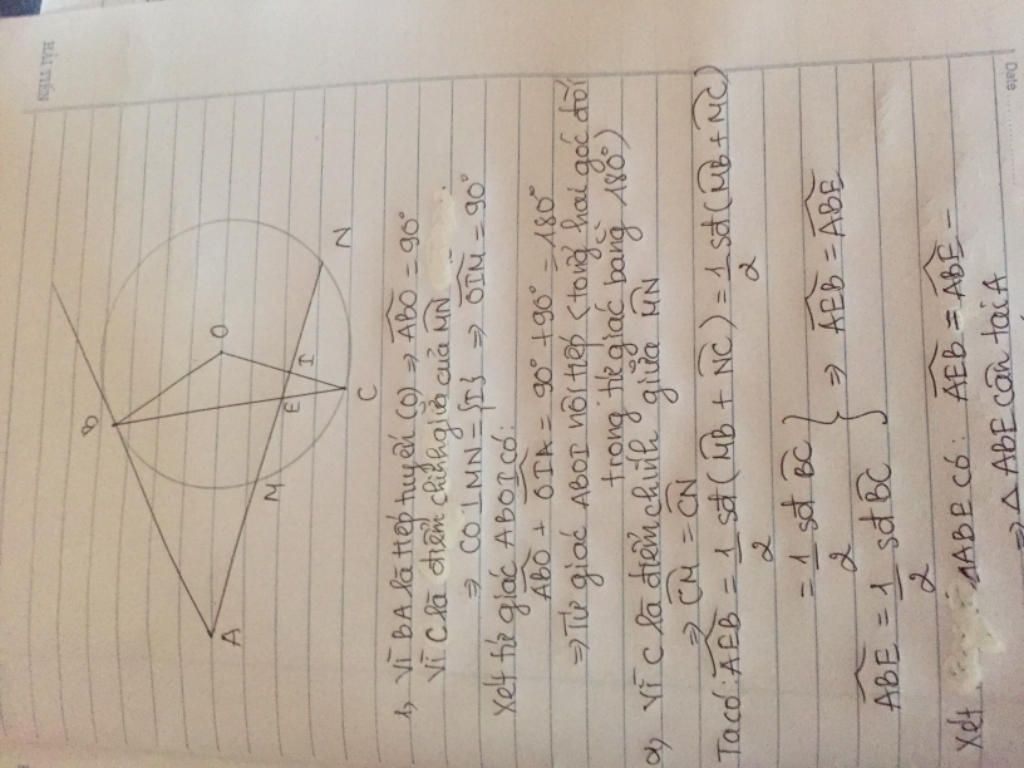 HẢI TIẾN
Date
B
O
A
M
E
I
N
C
1, Vì BA là tiếp tuyến (O) => ABO = 90°
Vì C là điểm chính giữa của MN
=> CO ⊥ MN = {I} => OIN = 90°
Xét tứ giác ABOI có:
ABO + OIA = 90° + 90° = 180°
=> Tứ giác ABOI nội tiếp (tổng hai góc đối
trong tứ giác bằng 180°)
a, Vì C là điểm chính giữa MN
=> CM = CN
Ta có: AEB = 1/2 sđ (MB + NC) = 1/2 sđ (MB + MC)
= 1/2 sđ BC
ABE = 1/2 sđ BC } => AEB = ABE
Xét ABE có: AEB = ABE
=> △ ABE cân tại A